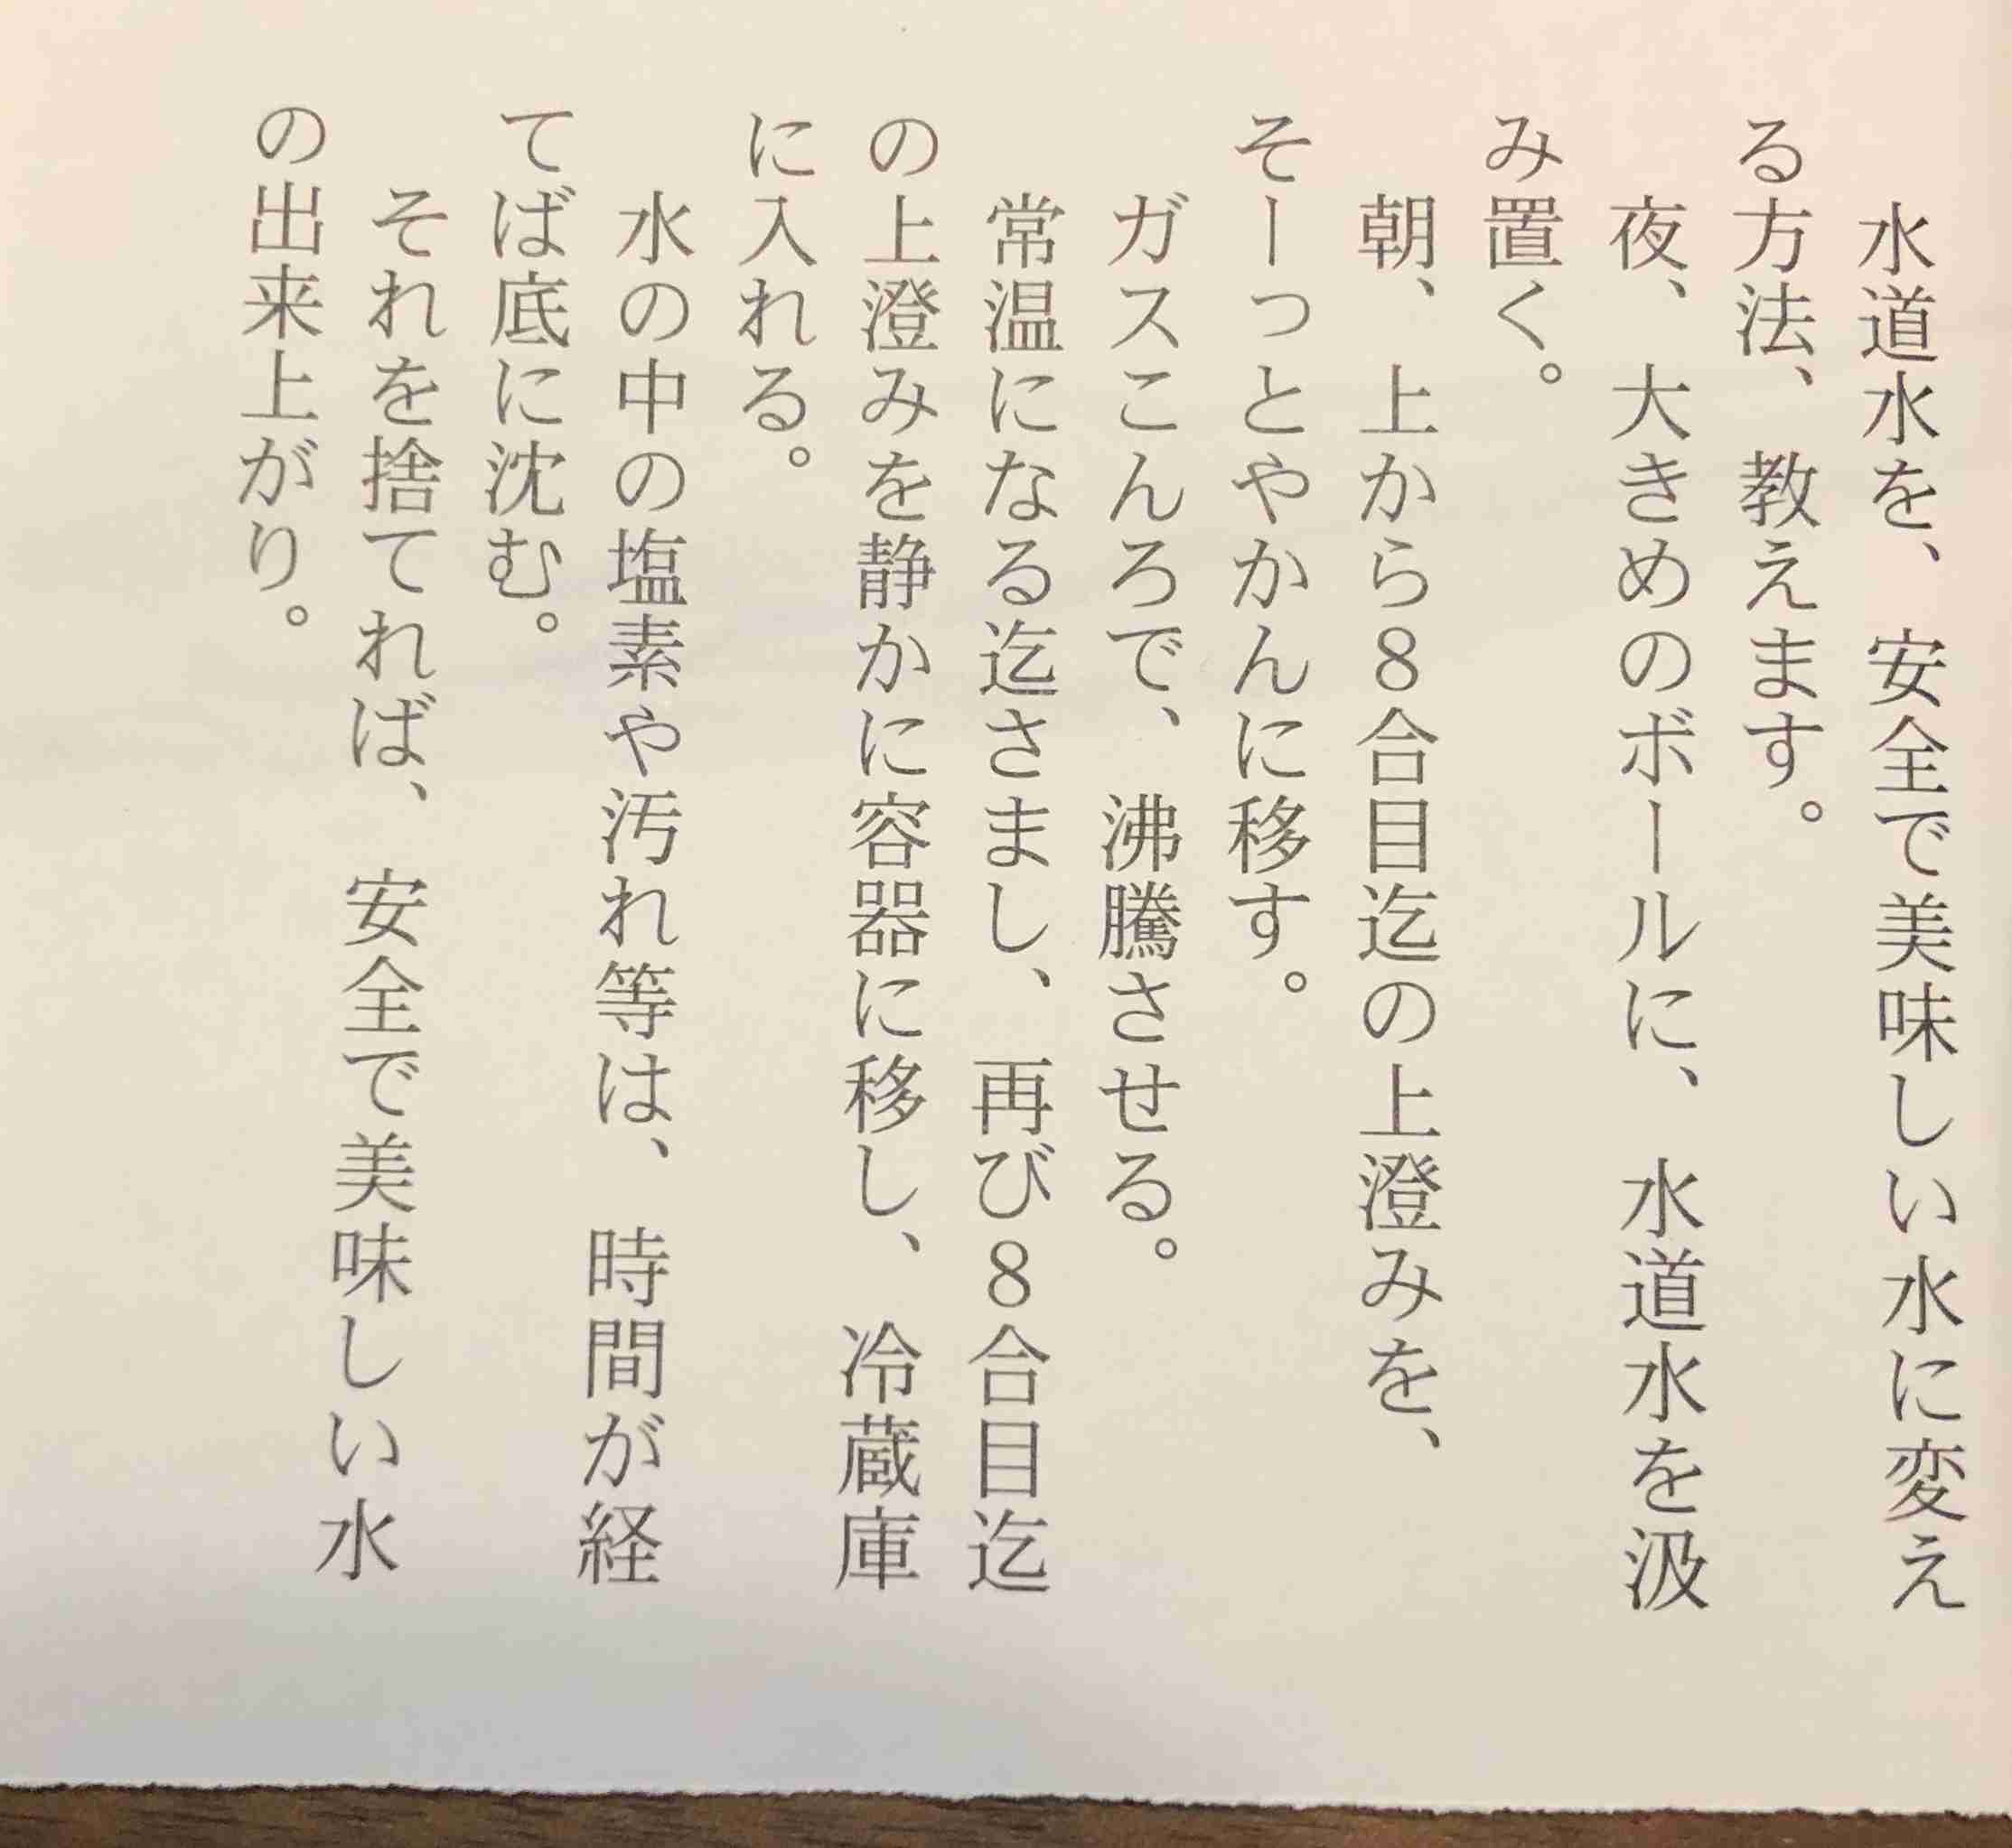 水道水を、安全で美味しい水に変え
る方法、教えます。
夜、大きめのボールに、水道水を汲
み置く。
朝、上から８合目迄の上澄みを、
そーっとやかんに移す。
ガスこんろで、沸騰させる。
常温になる迄さまし、再び８合目迄
の上澄みを静かに容器に移し、冷蔵庫
に入れる。
水の中の塩素や汚れ等は、時間が経
てば底に沈む。
それを捨てれば、安全で美味しい水
の出来上がり。